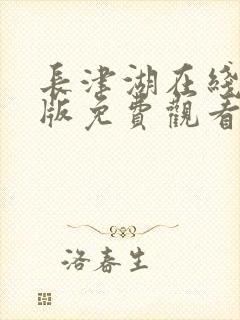 長津湖在綫
版免費觀看
洛春生